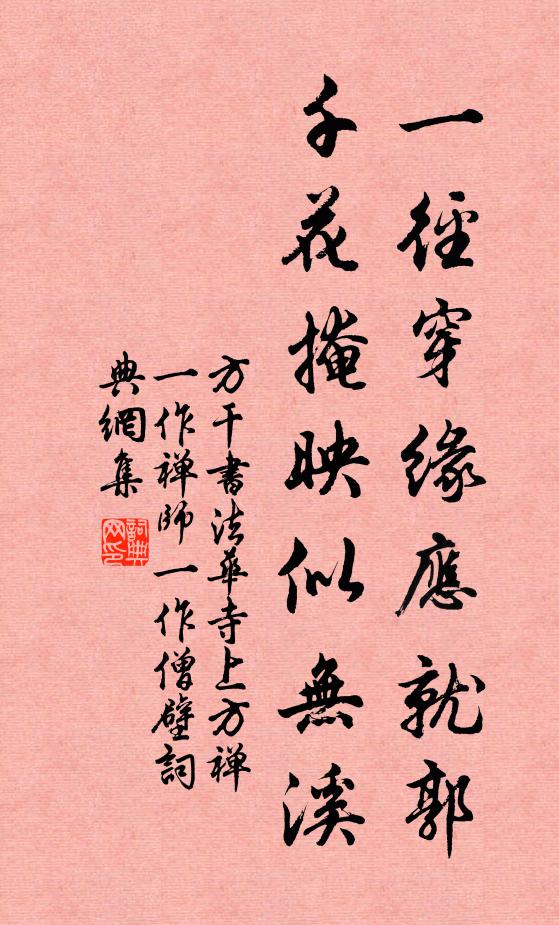 一徑穿緣應就郭
千花掩映似無溪
方干書法華寺上方禅
一作禅師一作僧壁詞
典網集
詞典网印